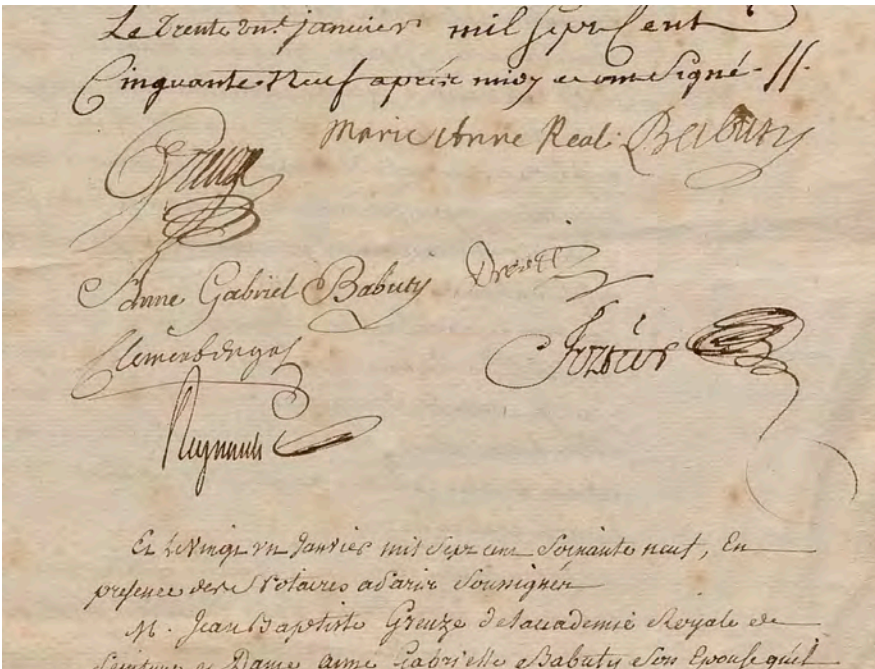 Le Trente un.e janvier mil Sept Cent
Cinquante Neuf après midy et ont Signé.
Marie Anne Real. Babuty
Greuze
Anne Gabriel Babuty
Et le Vingt un Janvier mil Sept cent Soixante neuf, En
presence des Notaires aParis Soussignés
M. Jean Baptiste Greuze de l'accademie Royale de
Peinture et Dame Anne Gabrielle Babuty Son Epouse qu'il